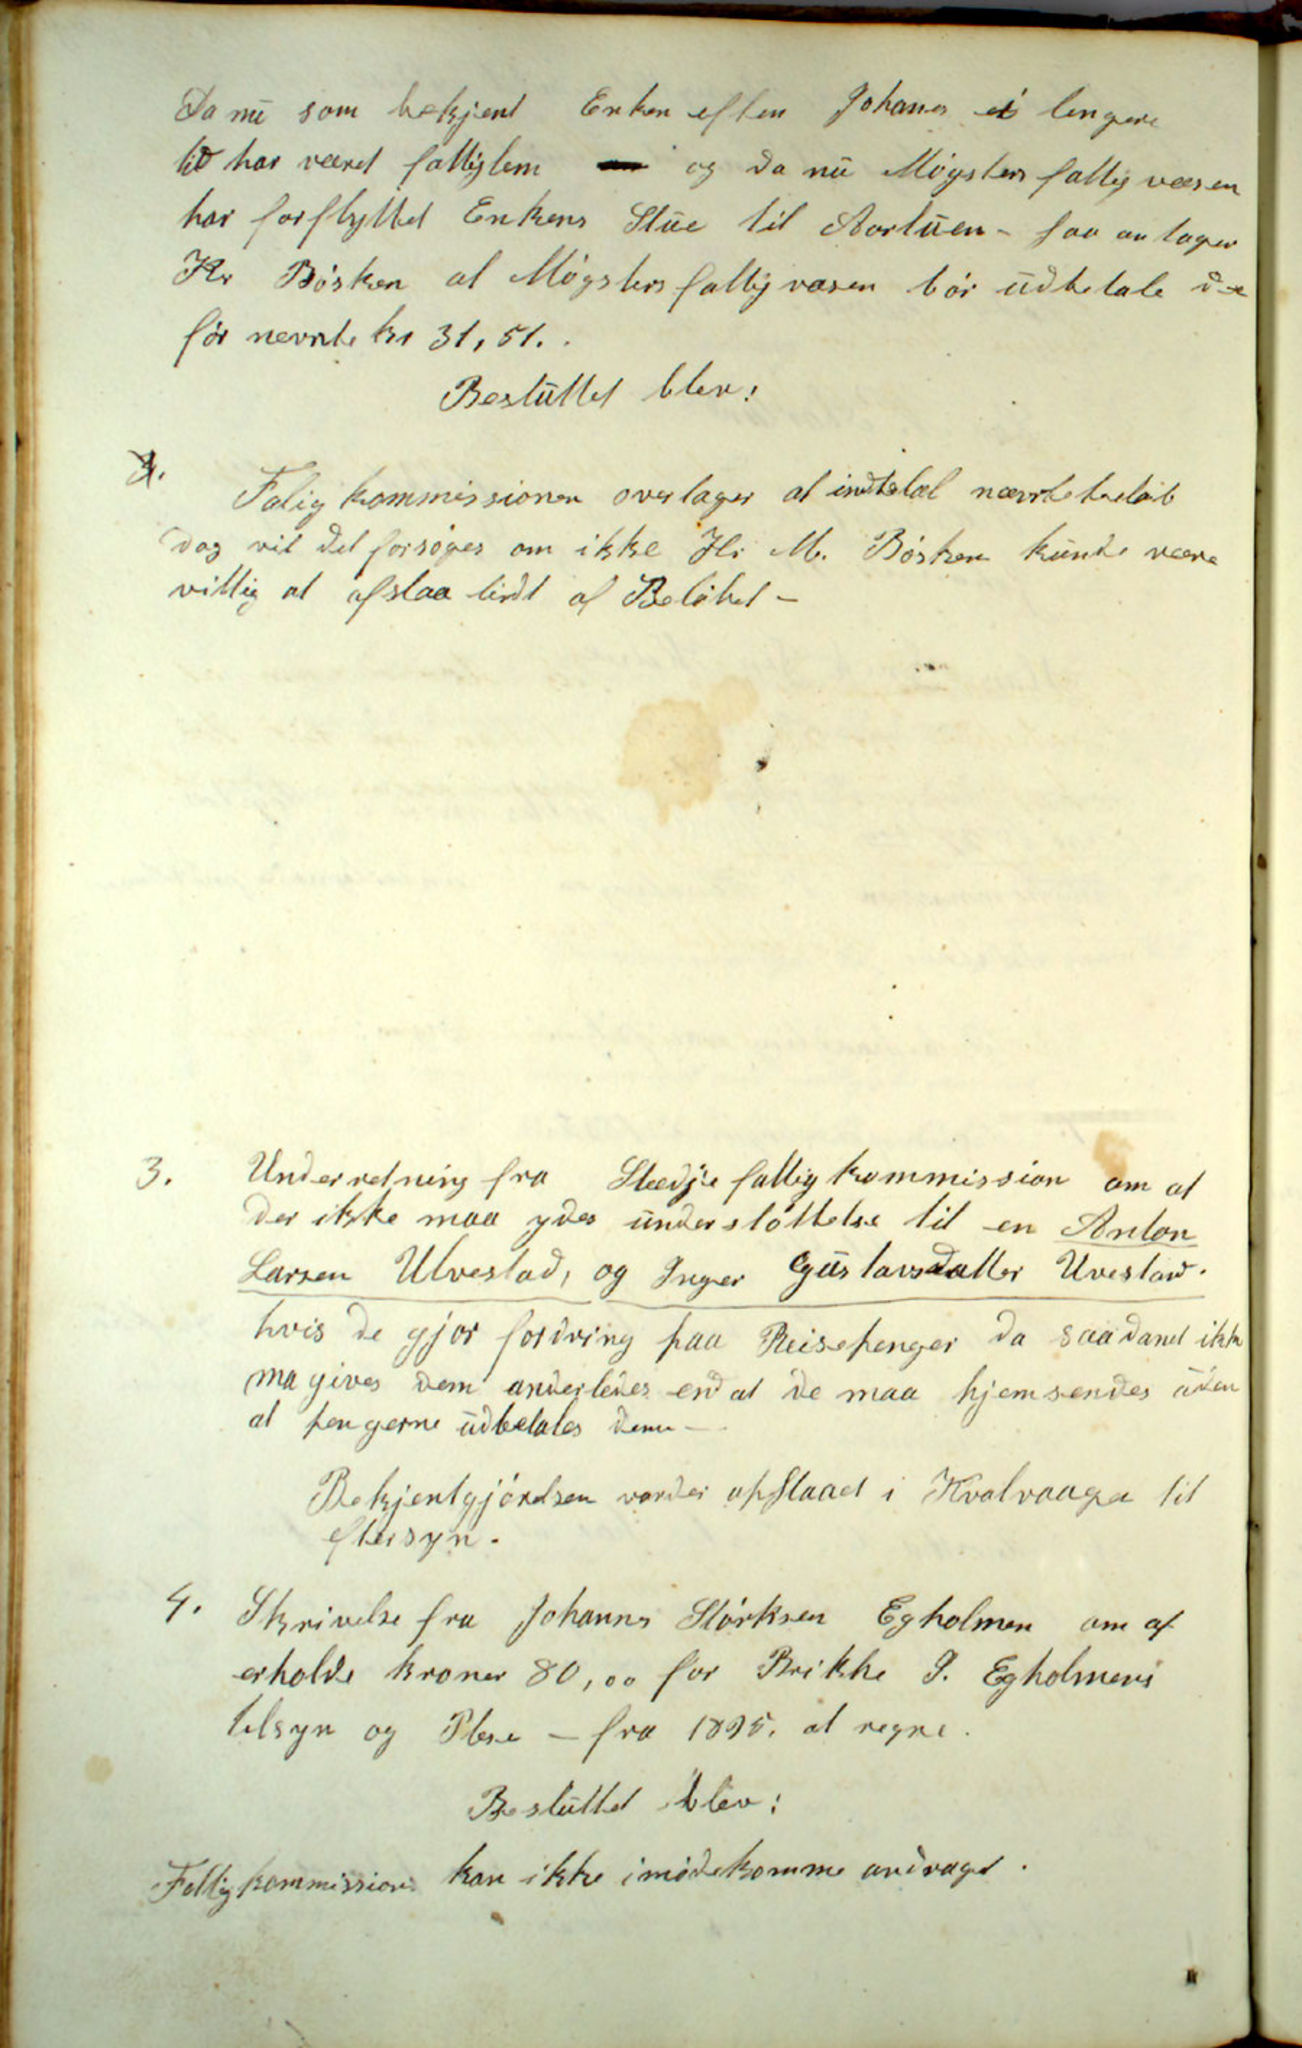 Da nu som bekjent Enken efter Johannes ei lengere
tid har været fattiglem og da nu Møgsters fattigvæsen
har forflyttet Enkens Stue til Aartuen - saa antager
Hr Bøsken at Møgsters fattigvæsen bør udbetale de
før nevnte kr 31,51.
Besluttet blev:
Fatigkommissionen overtager at indbetal nævnte beløb
dog vil det forsøges om ikke Hr M. Bøsken kunde være
villig at afslaa lidt af Beløbet -
3. Underretning fra Stedje fattigkommission om at
der ikke maa ydes understøttelse til en Anton
Larsen Ulvestad, og Inger Gustavsdatter Uvestad.
hvis de gjør fordring paa Reisepenger da saadant ikke
ma gives dem anderledes end at de maa hjemsendes uden
at pengerne udbetales dem -
Bekjentgjørelsen vorder opslaaet i Kvalvaage til
eftersyn.
4. Skrivelse fra Johannes Størksen Egholmen om at
erholde kroner 80,00 for Brikke J. Egholmens
tilsyn og Pleie - fra 1895. at regne.
Besluttet blev:
Fattigkommission kan ikke imødekomme andraget.